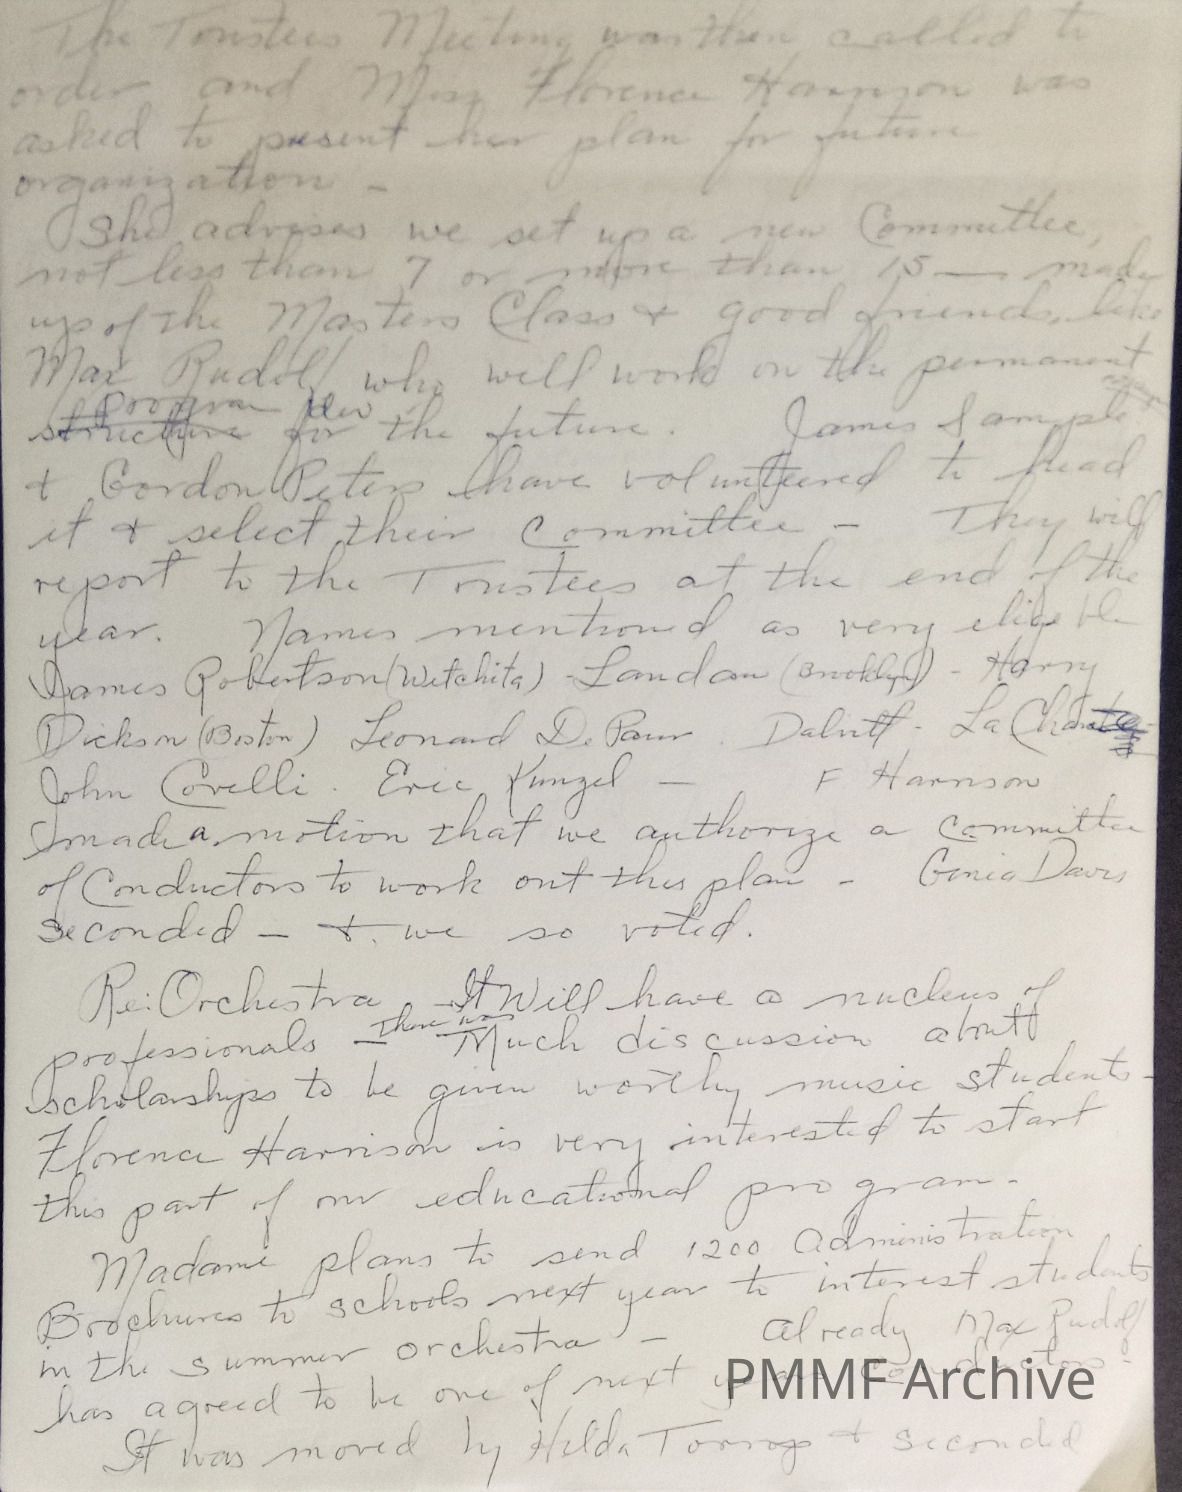 The Trustees Meeting was then called to
order and Miss Florence Harrison was
asked to present her plan for future
organization -
She advises we set up a new Committee,
not less than 7 or more than 15 — made
up of the Masters Class & good friends, like
Max Rudolf who will work on the permanent
program idea
structure for the future. James Sample
& Gordon Peters have volunteered to head
it & select their Committee - They will
report to the Trustees at the end of the
year. Names mentioned as very eligible
James Robertson (Witchita) - Landau (Brooklyn) - Harry
Dickson (Boston) Leonard De Paur. - La
John Covelli. Eric Kunzel — F Harrison
made a motion that we authorize a committee
of Conductors to work out this plan - Genia Davis
seconded — & we so voted.
Re: Orchestra - It Will have a nucleus of
There was
professionals — Much discussion about
scholarships to be given worthy music students -
Florence Harrison is very interested to start
this part of our educational program.
Madame plans to send 1200 Administration
Brochures to schools next year to interest students
in the summer orchestra - Already Max Rudolf
has agreed to be one of next years Conductors -
It was moved by Hilda Torrop & seconded
PMMF Archive